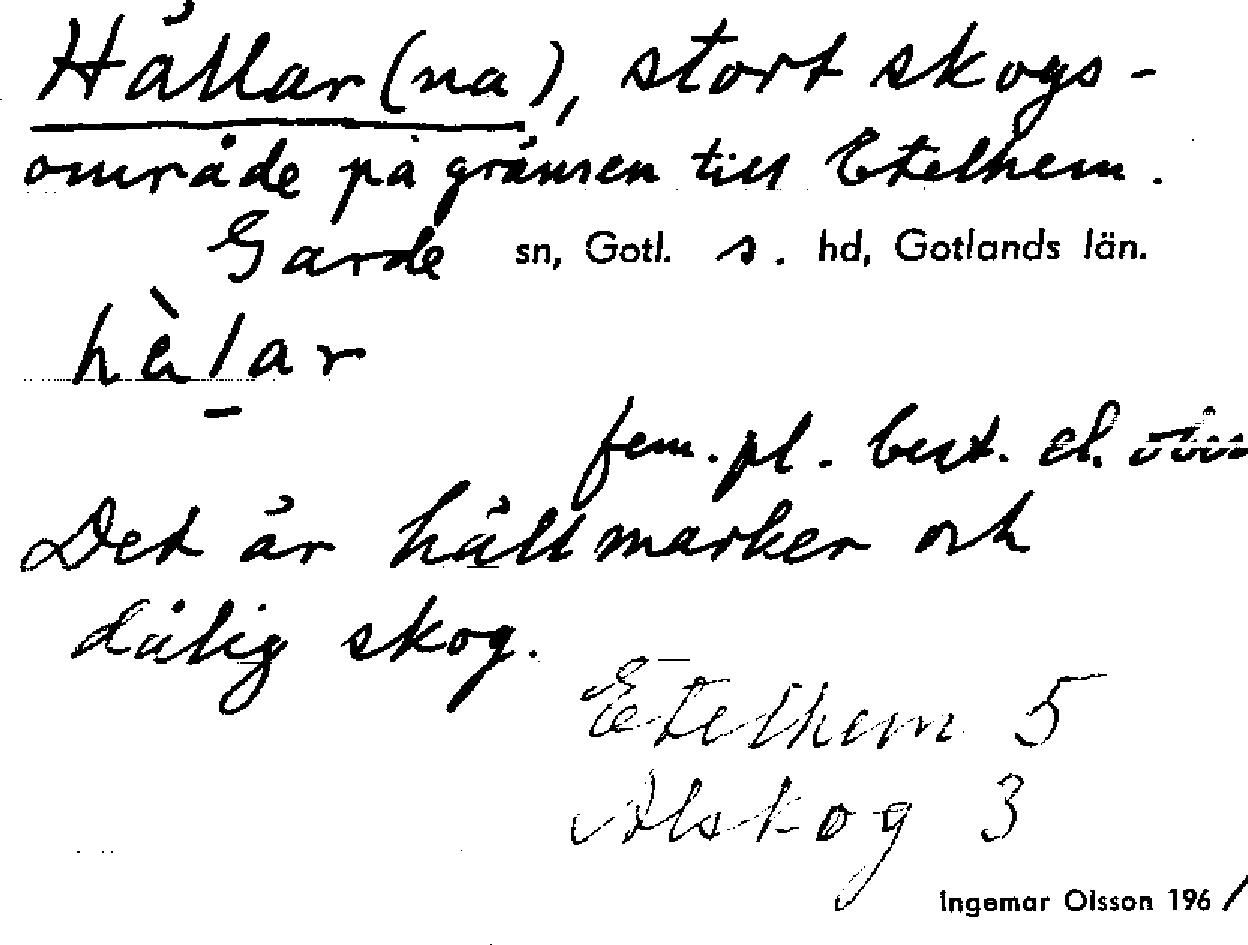 Hällar(na), stort skogs-
område på gränsen till Etelhem.
Garde sn, Gotl. s. hd, Gotlands län.
hàlar
fem. pl. best. el.
Det är hällmarker och
dålig skog.
Etelhem 5
Alskog 3
Ingemar Olsson 1961